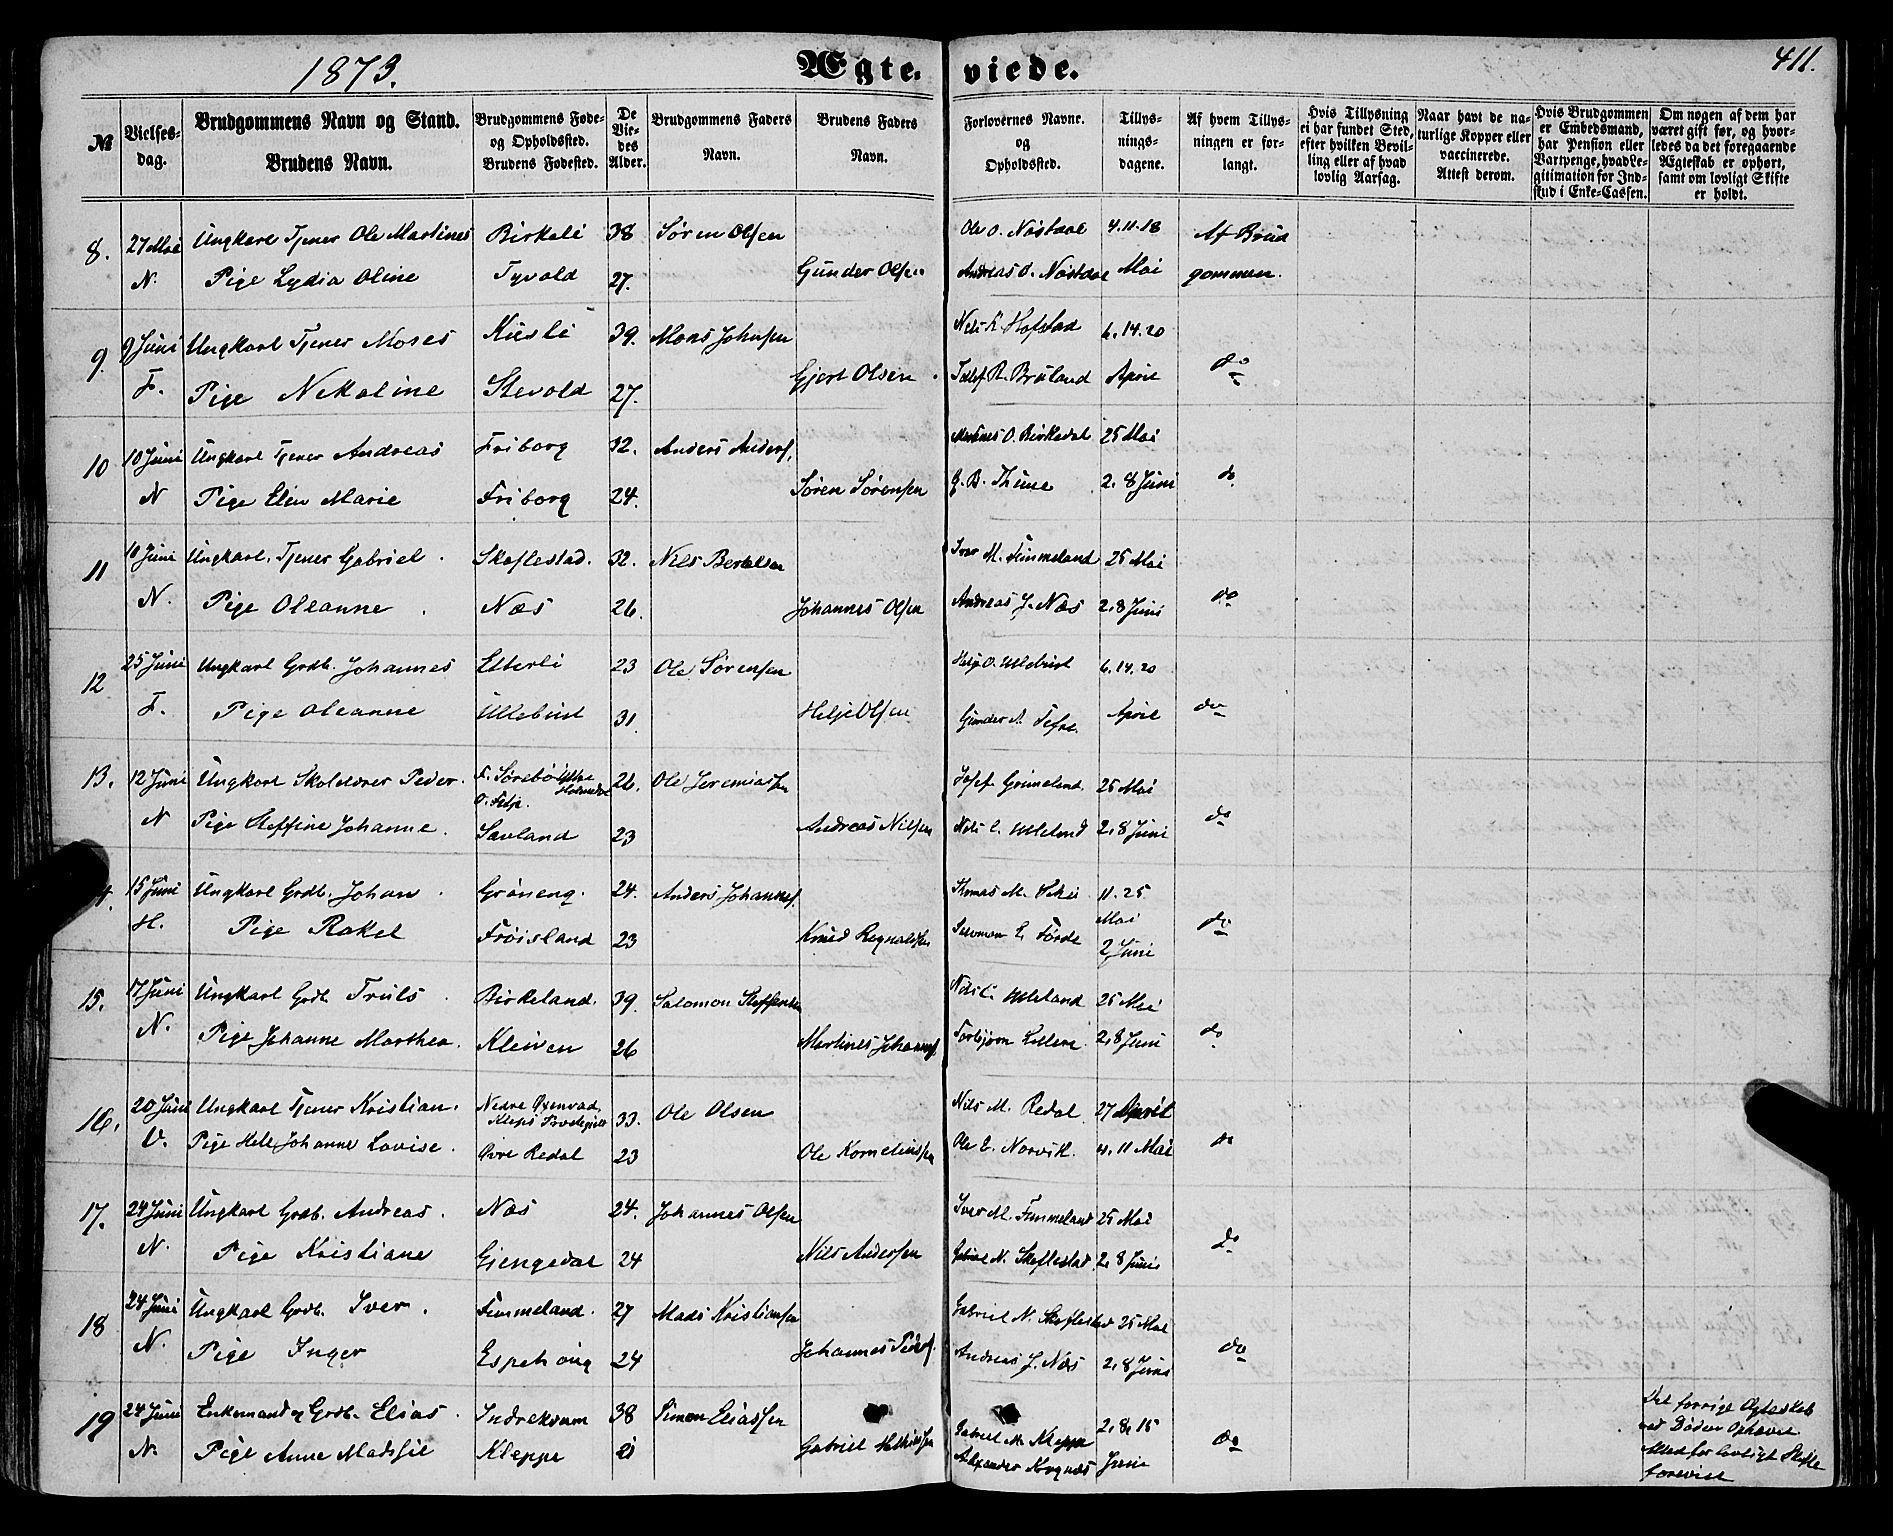 1873.
Ægte-
viede.
411.
№
Vielses-
dag.
Brudgommens Navn og Stand.
Brudens Navn.
Brudgommens Føde-
og Opholdssted.
Brudens Fødested.
De
Vie-
des
Alder.
Brudgommens Faders
Navn.
Brudens Faders
Navn.
Forlovernes Navne.
og
Opholdssted.
Tillys-
nings-
dagene.
Af hvem Tillys-
ningen er for-
langt.
Hvis Tillysning
ei har fundet Sted,
efter hvilken Bevil-
ling eller af hvad
lovlig Aarsag.
Naar havt de na-
turlige Kopper eller
vaccinerede.
Attest derom.
Hvis Brudgommen
er Embedsmand,
har Pension eller
Vartpenge, hvad Le-
gitimation for Ind-
skud i Enke-Cassen.
Om nogen af dem har
været gift før, og hvor-
ledes da det foregaaende
Ægteskab er ophørt,
samt om lovligt Skifte
er holdt.
8. 27 Mai Ungkarl Tjener Ole Martines Birkeli 38 Søren Olsen Ole O. Nøstdal 4.11.18 Af Brud
N. Pige Lydia Oline Tyvold 27. Gunder Olsen Andreas O. Nøstdal Mai gommen.
9. 9 Juni Ungkarl Tjener Moses Kirsli 39. Mons Johnsen Nils K. Hofstad 6.14.20
F. Pige Nikoline Stevold 27. Gjert Olsen R. Bruland April do
10 10 Juni Ungkarl Tjener Andreas Friborg 32. Anders Anders. Martines O. Birkedal 25 Mai
N Pige Elen Marie Friborg 24. Søren Sørensen G. B. Thune 2. 8 Juni do
11 10 Juni Ungkarl, Tjener Gabriel Skaflestad. 32. Nils Bertelsen Iver M. Fimmeland 25 Mai
N. Pige Oleanne Næs 26. Johannes Olsen Andreas J. Næs 2.8 Juni do
12 25 Juni Ungkarl Grdb. Johannes Etterli 23 Ole Sørensen Helje O. Ullebust 6.14.20
F. Pige Oleanne Ullebust 31. Helje Olsen Gunder A. April do
13. 12 Juni Ungkarl Skolelærer Peder. F. Sørebø 26. Ole Jeremiassen Josef Grimelend. 25 Mai
O. Felje.
N Pige Steffine Johanne. Sæland 23 Andreas Nilsen Nils E. Uleland 2.8 Juni do
15 Juni Ungkarl Grdb. Johan Grøneng. 24. Anders Johannes. Thomas M. 11.25
H. Pige Rakel Frøisland 23 Knud Regnaldsen Salomon E. Førde Mai do
2 Juni
15. 17 Juni Ungkarl Grdb. Truls Birkeland. 39. Salomon Steffensen Nils E. Uleland 25 Mai
N. Pige Johanne Marthea. Kleiven 26 Martines Johannes. Torbjørn 2.8 Juni do
16. 20 Juni Ungkarl Tjener Kristian. Nedre 33. Ole Olsen Nils M. Redal 27 April
Kleps Præstegjeld
V. Pige Hell Johanne Lovise. Øvre Redal 23 Ole Korneliussen Ole E. Norvik. 4.11 Mai do
17. 24 Juni Ungkarl Grdb. Andreas. Næs 24. Johannes Olsen Iver M. Fimmeland 25 Mai
N. Pige Kristiane Gjengedal 24 Nils Andersen Gabriel N. Skaflestad. 2. 8 Juni do
18 24 Juni Ungkarl Grdb. Iver. Fimmeland. 27 Mads Kristiansen Gabriel N. Skaflestad 25 Mai
N. Pige Inger Espehoug 24 Johannes Peders. Andreas J. Næs 2.8 Juni do
19 24 Juni Enkemand og Grdb. Elias Indrekvam 38 Simon Eliassen Gabriel M. Kleppe 2.8.15 do
N. Pige Anne Madssie Kleppe 21 Gabriel Mathiassen Alexander Juni
Det forrige Ægteskab
ved Døden Ophævet
Attest for lovligt Skifte
forevist